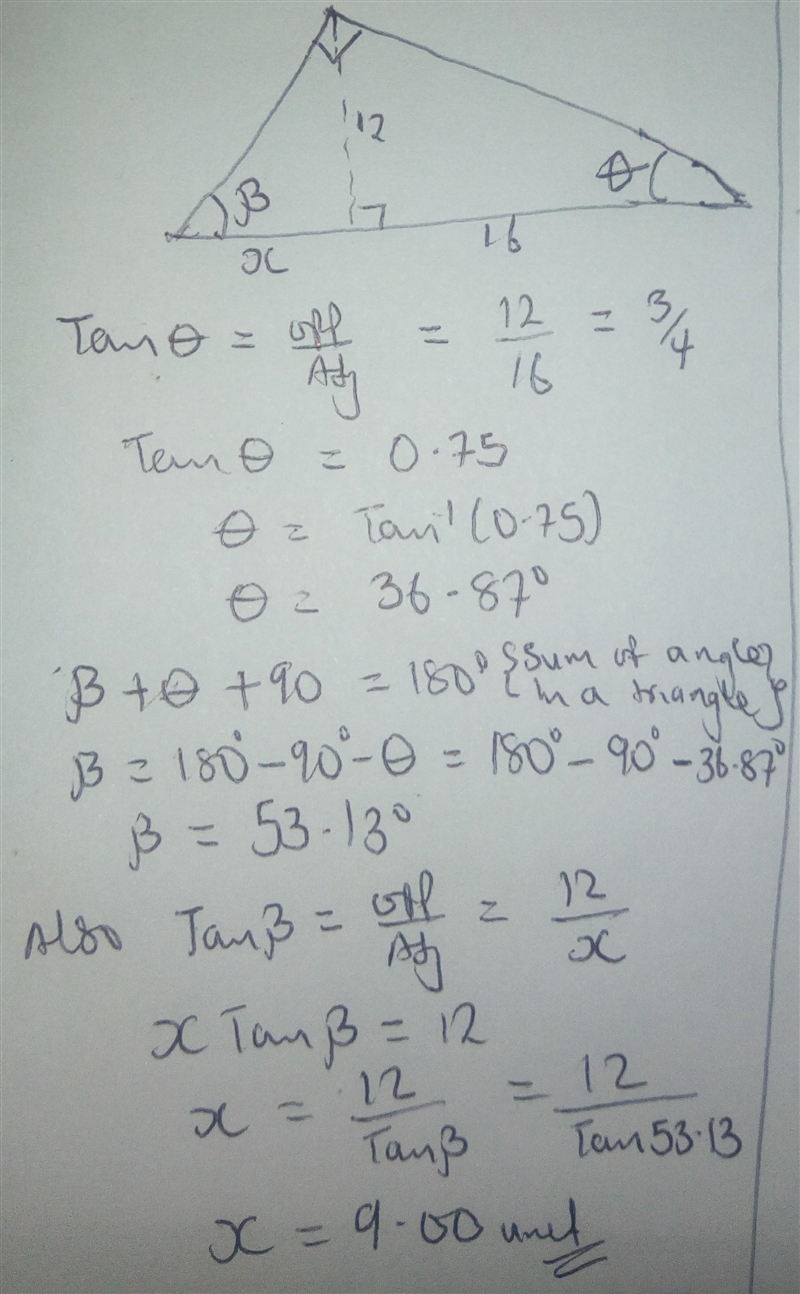 12
β
θ
x
16
Tan θ = opp/Adj = 12/16 = 3/4
Tan θ = 0.75
θ = Tan⁻¹(0.75)
θ = 36.87°
β + θ + 90 = 180° {Sum of angles in a triangle}
β = 180° - 90° - θ = 180° - 90° - 36.87°
β = 53.13°
Also Tan β = opp/Adj = 12/x
x Tan β = 12
x = 12/Tan β = 12/Tan 53.13
x = 9.00 unit